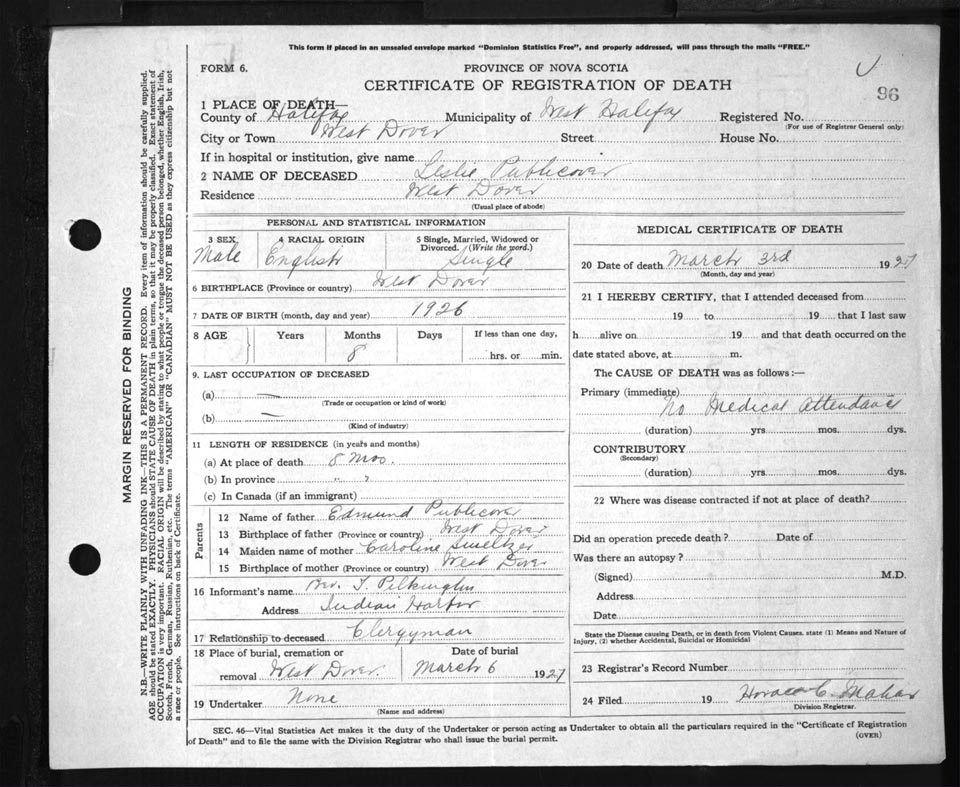 This form if placed in an unsealed envelope marked "Dominion Statistics Free", and properly addressed, will pass through the mails "FREE."
FORM 6.
PROVINCE OF NOVA SCOTIA
CERTIFICATE OF REGISTRATION OF DEATH
96
1 PLACE OF DEATH—
County of Halifax Municipality of West Halifax Registered No.
(For use of Registrar General only)
City or Town West Dover Street House No.
If in hospital or institution, give name
2 NAME OF DECEASED Leslie Publicover
Residence West Dover
(Usual place of abode)
PERSONAL AND STATISTICAL INFORMATION
3 SEX 4 RACIAL ORIGIN 5 Single, Married, Widowed or Divorced. (Write the word.)
Male English Single
6 BIRTHPLACE (Province or country) West Dover
7 DATE OF BIRTH (month, day and year) 1926
8 AGE Years Months Days If less than one day,
8 hrs. or min.
9. LAST OCCUPATION OF DECEASED
(a) —
(Trade or occupation or kind of work)
(b) —
(Kind of industry)
11 LENGTH OF RESIDENCE (in years and months)
(a) At place of death 8 mos.
(b) In province " "
(c) In Canada (if an immigrant)
Parents
12 Name of father Edmund Publicover
13 Birthplace of father (Province or country) West Dover
14 Maiden name of mother Caroline Smeltzer
15 Birthplace of mother (Province or country) West Dover
16 Informant's name Rev. T. Pilkington
Address Indian Harbor
17 Relationship to deceased Clergyman
18 Place of burial, cremation or removal West Dover. Date of burial March 6 1927
19 Undertaker None
(Name and address)
MEDICAL CERTIFICATE OF DEATH
20 Date of death March 3rd 1927
(Month, day and year)
21 I HEREBY CERTIFY, that I attended deceased from
19 to 19 that I last saw
h alive on 19 and that death occurred on the
date stated above, at m.
The CAUSE OF DEATH was as follows:—
Primary (immediate)
No Medical Attendance
(duration) yrs. mos. dys.
CONTRIBUTORY
(Secondary)
(duration) yrs. mos. dys.
22 Where was disease contracted if not at place of death?
Did an operation precede death? Date of
Was there an autopsy?
(Signed) M.D.
Address
Date
State the Disease causing Death, or in death from Violent Causes. state (1) Means and Nature of
Injury, (2) whether Accidental, Suicidal or Homicidal
23 Registrar's Record Number
24 Filed 19 Horace C. Mahar
Division Registrar.
SEC. 46—Vital Statistics Act makes it the duty of the Undertaker or person acting as Undertaker to obtain all the particulars required in the "Certificate of Registration
of Death" and to file the same with the Division Registrar who shall issue the burial permit.
(OVER)
MARGIN RESERVED FOR BINDING
N.B.—WRITE PLAINLY WITH UNFADING INK—THIS IS A PERMANENT RECORD. Every item of information should be carefully supplied.
AGE should be stated EXACTLY. PHYSICIANS should STATE CAUSE OF DEATH in plain terms, so that it may be properly classified. Exact statement of
OCCUPATION is very important. RACIAL ORIGIN will be described by stating to what people or tongue the deceased person belonged, whether English, Irish,
Scotch, French, German, Russian, Ruthenian, etc. The terms "AMERICAN" OR "CANADIAN" MUST NOT BE USED as they express citizenship but not
a race or people. See instructions on back of Certificate.